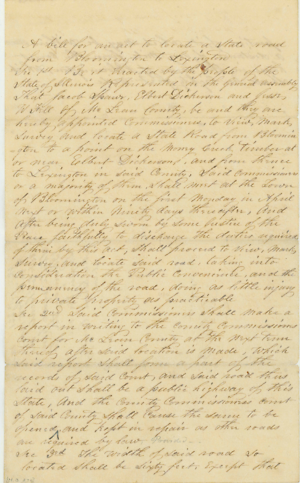 A bill for an act to locate a State road
from Bloomington to Lexington
Sec 1st Be it enacted by the People of the
State of Illinois Represented in the general assembly
That Jacob Spawr, Elbert Dickerson and Jesse
W Fell of McLean County, be and they are
hereby appointed Commissioners, to view, Mark,
Survey and locate a State Road from Bloomin
gton to a point on the Money Creek timber at
or near Elbert Dickersons, and from thence
to Lexington in Said County, Said Commissioners
or a majority of them shall meet at the town
of Bloomington on the first Monday in April
next or within ninety days thereafter, and
after being duly sworn by some justice of the
Peace faithfully to discharge the duties required
of them by this act, Shall proceed to View, Mark,
Survey, and locate said road, taking into
consideration the Public Convenience, and the
permanency of the road, doing as little injury
to private property as practicable
Sec 2nd Said Commissioners shall make a
report in writing to the County Commissioners
Court for McLean County at the next term
thereof, after said location is made, which
said report shall form a part of the
records of Said Court, and said road thus
laid out shall be a public highway of this
State, And the County Commissioners court
of Said County Shall Cause the same to be
opened and kept in repair as other roads
are required by law
Sec 3rd The width of said road so
located shall be sixty feet. Except that